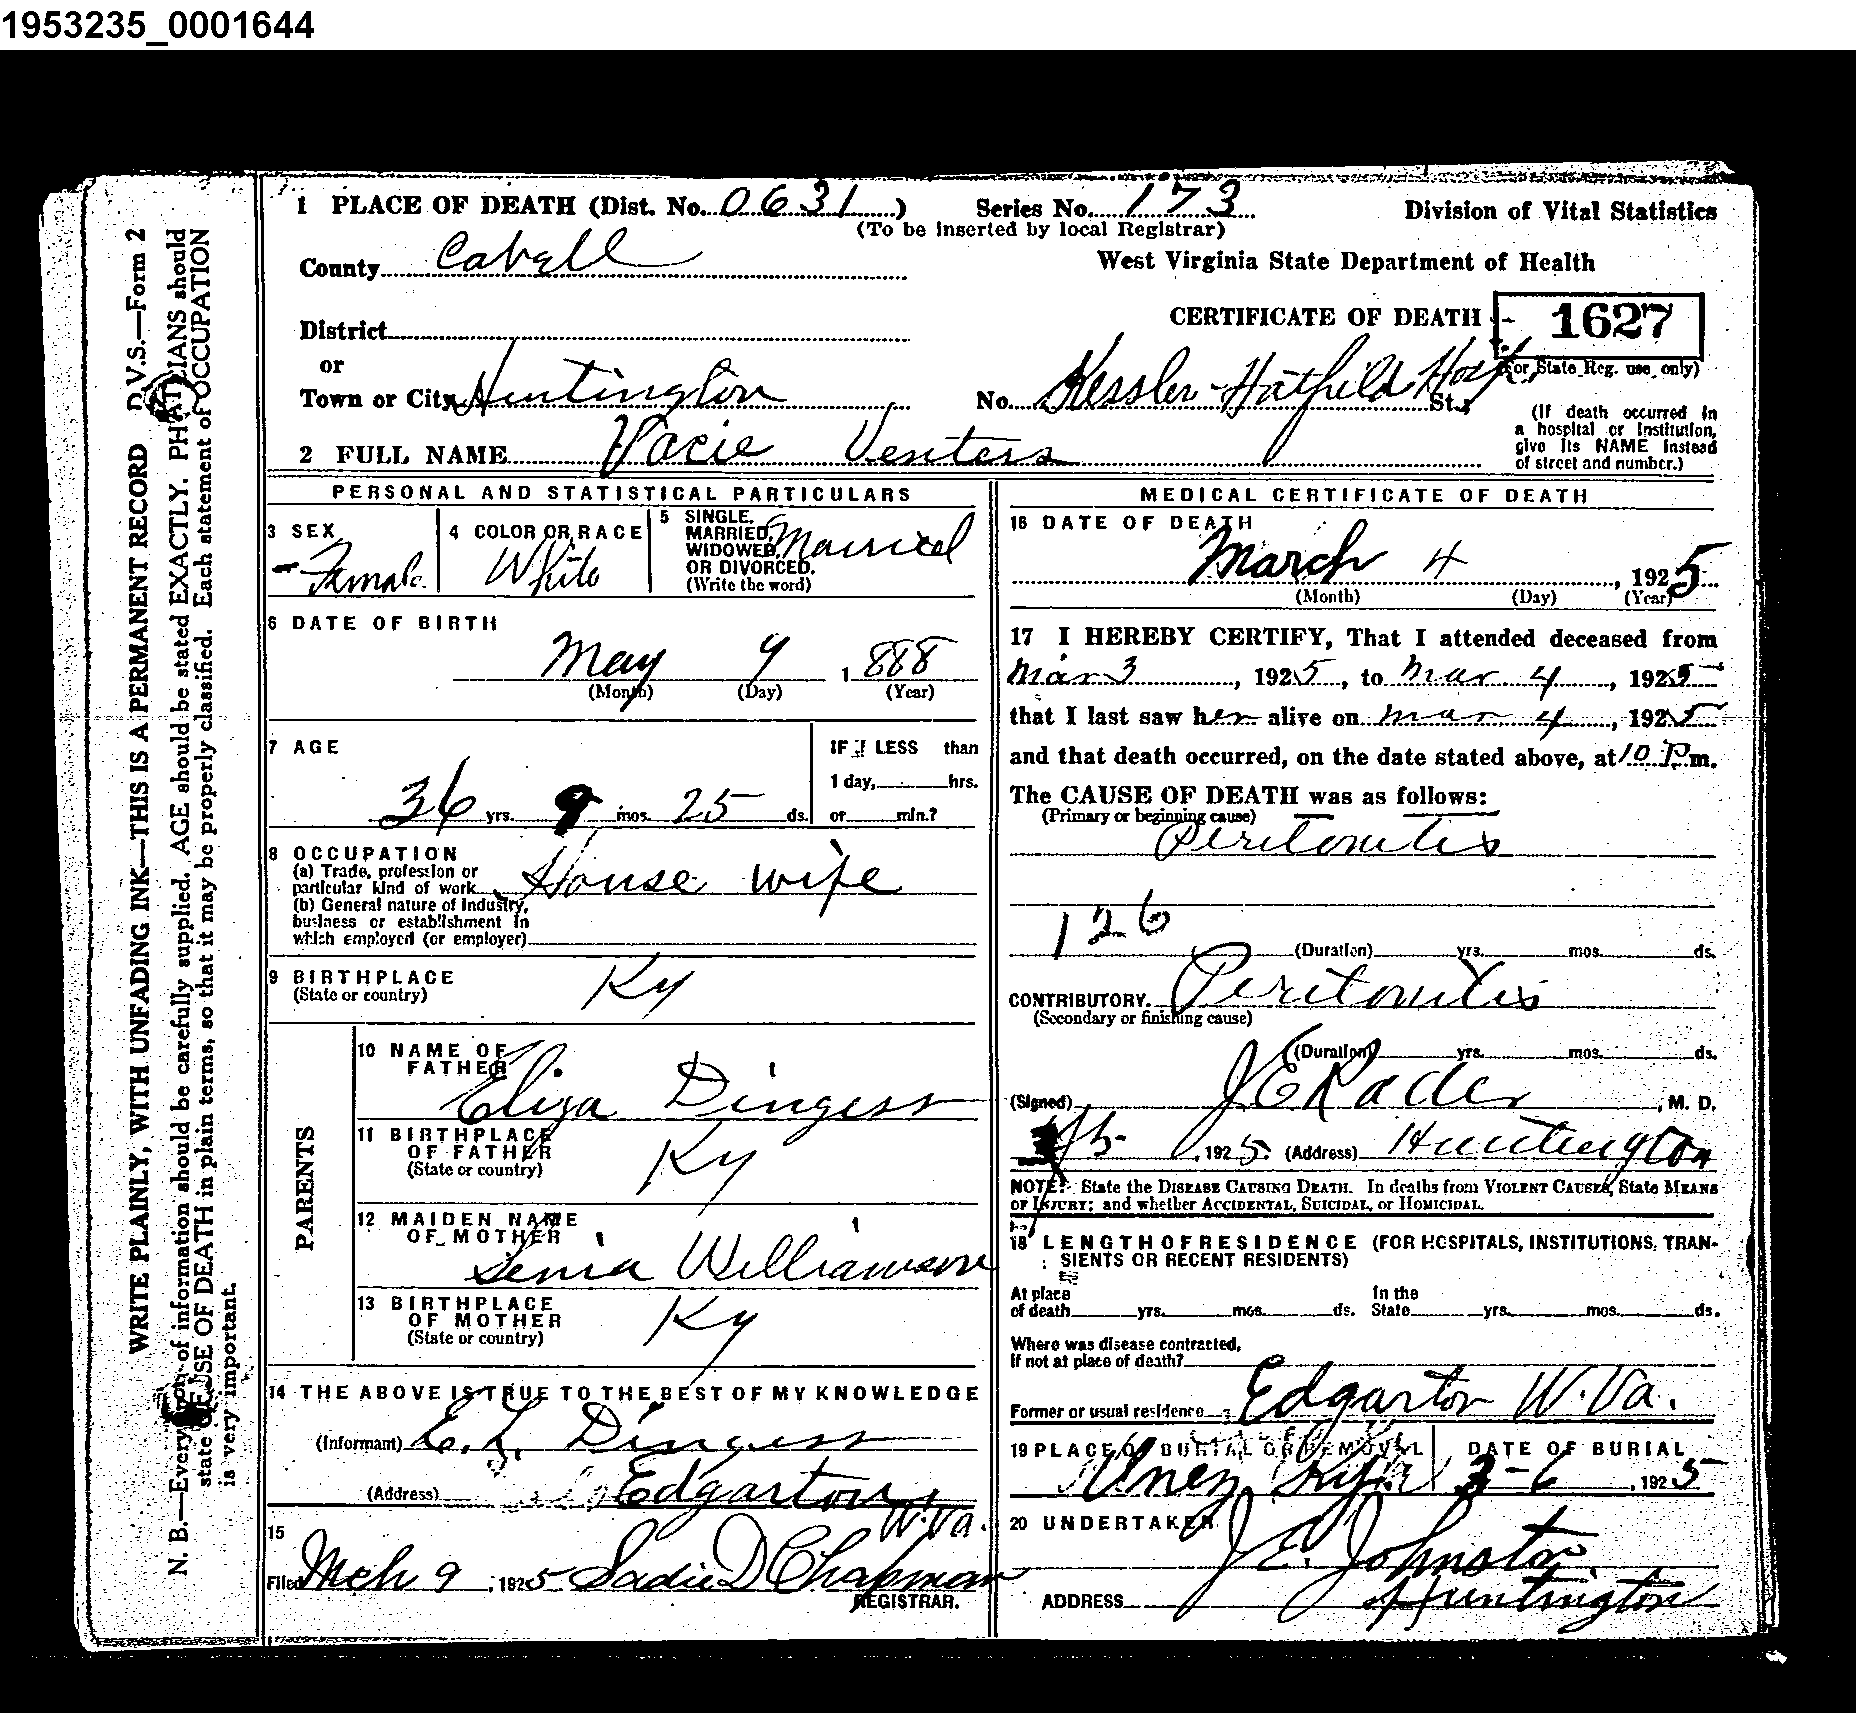 1953235_0001644
WRITE PLAINLY, WITH UNFADING INK—THIS IS A PERMANENT RECORD D.V.S.—Form 2
N. B.—Every of information should be carefully supplied. AGE should be stated EXACTLY. should
state OF DEATH in plain terms, so that it may be properly classified. Each statement of OCCUPATION
is very important.
1 PLACE OF DEATH (Dist. No. 0631 ) Series No. 173 Division of Vital Statistics
(To be inserted by local Registrar)
County Cabell West Virginia State Department of Health
District CERTIFICATE OF DEATH 1627
or (For State Reg. use only)
Town or City Huntington No. Kessler-Hatfield Hosp. St.;
(If death occurred in
a hospital or institution,
give its NAME instead
of street and number.)
2 FULL NAME Vacie Venters
PERSONAL AND STATISTICAL PARTICULARS
3 SEX
Female
4 COLOR OR RACE
White
5 SINGLE,
MARRIED,
WIDOWED,
OR DIVORCED.
(Write the word)
Married
6 DATE OF BIRTH
May 9 1888
(Month) (Day) (Year)
7 AGE
36 yrs. 9 mos. 25 ds.
IF LESS than
1 day, hrs.
or min.?
8 OCCUPATION
(a) Trade, profession or
particular kind of work House wife
(b) General nature of Industry,
business or establishment in
which employed (or employer)
9 BIRTHPLACE
(State or country) Ky
PARENTS
10 NAME OF
FATHER Eliza Dingess
11 BIRTHPLACE
OF FATHER
(State or country) Ky
12 MAIDEN NAME
OF MOTHER Senia Williamson
13 BIRTHPLACE
OF MOTHER
(State or country) Ky
14 THE ABOVE IS TRUE TO THE BEST OF MY KNOWLEDGE
(Informant) E. L. Dingess
(Address) Edgarton
W.Va.
15
Filed Mch 9, 1925 Sadie D Chapman
REGISTRAR.
MEDICAL CERTIFICATE OF DEATH
16 DATE OF DEATH
March 4, 1925
(Month) (Day) (Year)
17 I HEREBY CERTIFY, That I attended deceased from
Mar 3, 1925, to Mar 4, 1925
that I last saw her alive on Mar 4, 1925
and that death occurred, on the date stated above, at 10 P.m.
The CAUSE OF DEATH was as follows:
(Primary or beginning cause)
Peritonitis
126
(Duration) yrs. mos. ds.
CONTRIBUTORY. Peritonitis
(Secondary or finishing cause)
(Duration) yrs. mos. ds.
(Signed) J E Rader, M. D.
3/5- , 1925. (Address) Huntington
NOTE: State the DISEASE CAUSING DEATH. In deaths from VIOLENT CAUSES, State MEANS
OF INJURY; and whether ACCIDENTAL, SUICIDAL, or HOMICIDAL.
18 LENGTH OF RESIDENCE (FOR HOSPITALS, INSTITUTIONS, TRAN-
SIENTS OR RECENT RESIDENTS)
At place
of death yrs. mos. ds.
In the
State yrs. mos. ds.
Where was disease contracted,
If not at place of death?
Former or usual residence Edgarton W. Va.
19 PLACE OF BURIAL OR REMOVAL
Inez Ky.
DATE OF BURIAL
3-6, 1925
20 UNDERTAKER
J. E. Johnston
ADDRESS Huntington